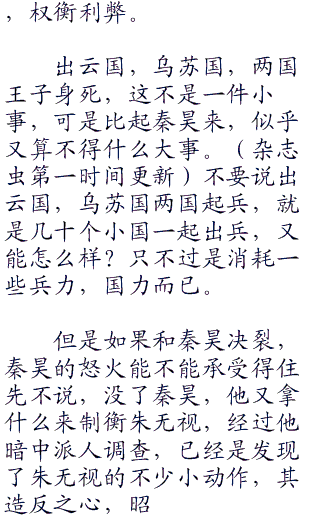 ，权衡利弊。
出云国，乌苏国，两国
王子身死，这不是一件小
事，可是比起秦昊来，似乎
又算不得什么大事。（杂志
虫第一时间更新）不要说出
云国，乌苏国两国起兵，就
是几十个小国一起出兵，又
能怎么样？只不过是消耗一
些兵力，国力而已。
但是如果和秦昊决裂，
秦昊的怒火能不能承受得住
先不说，没了秦昊，他又拿
什么来制衡朱无视，经过他
暗中派人调查，已经是发现
了朱无视的不少小动作，其
造反之心，昭